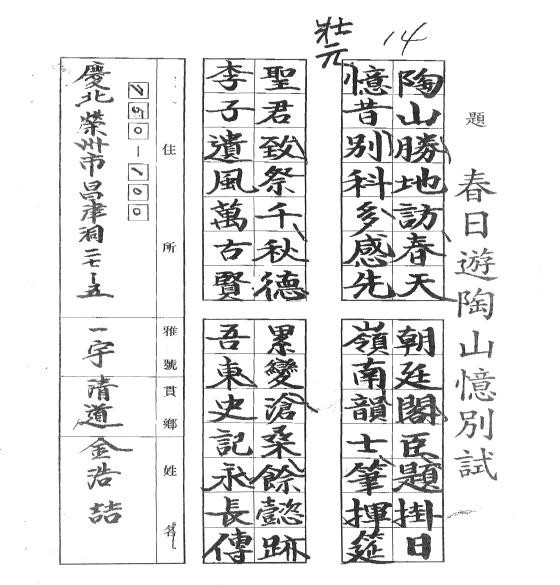 14
壯元
題
春日遊陶山憶別試
陶山勝地訪春天
憶昔別科多感先
朝廷閣臣題掛日
嶺南韻士筆揮筵
聖君致祭千秋德
李子遺風萬古賢
累變滄桑餘懿跡
吾東史記永長傳
住所
750-100
慶北榮州市昌津洞二七-五
雅號
一宇
貫鄉
清道
姓名
金浩詰